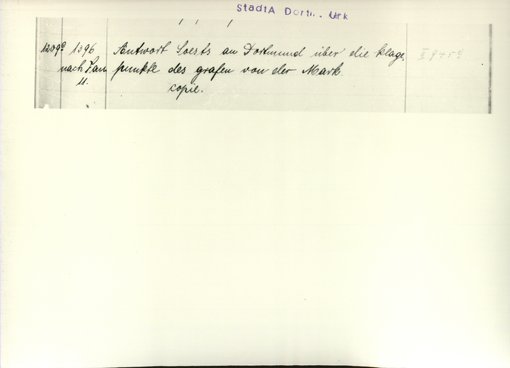 StadtA Dortm. Urk
1209a 1396 Antwort Soests an Dortmund über die Klage,
nach Jan. punkte des grafen von der Mark
4. copie.